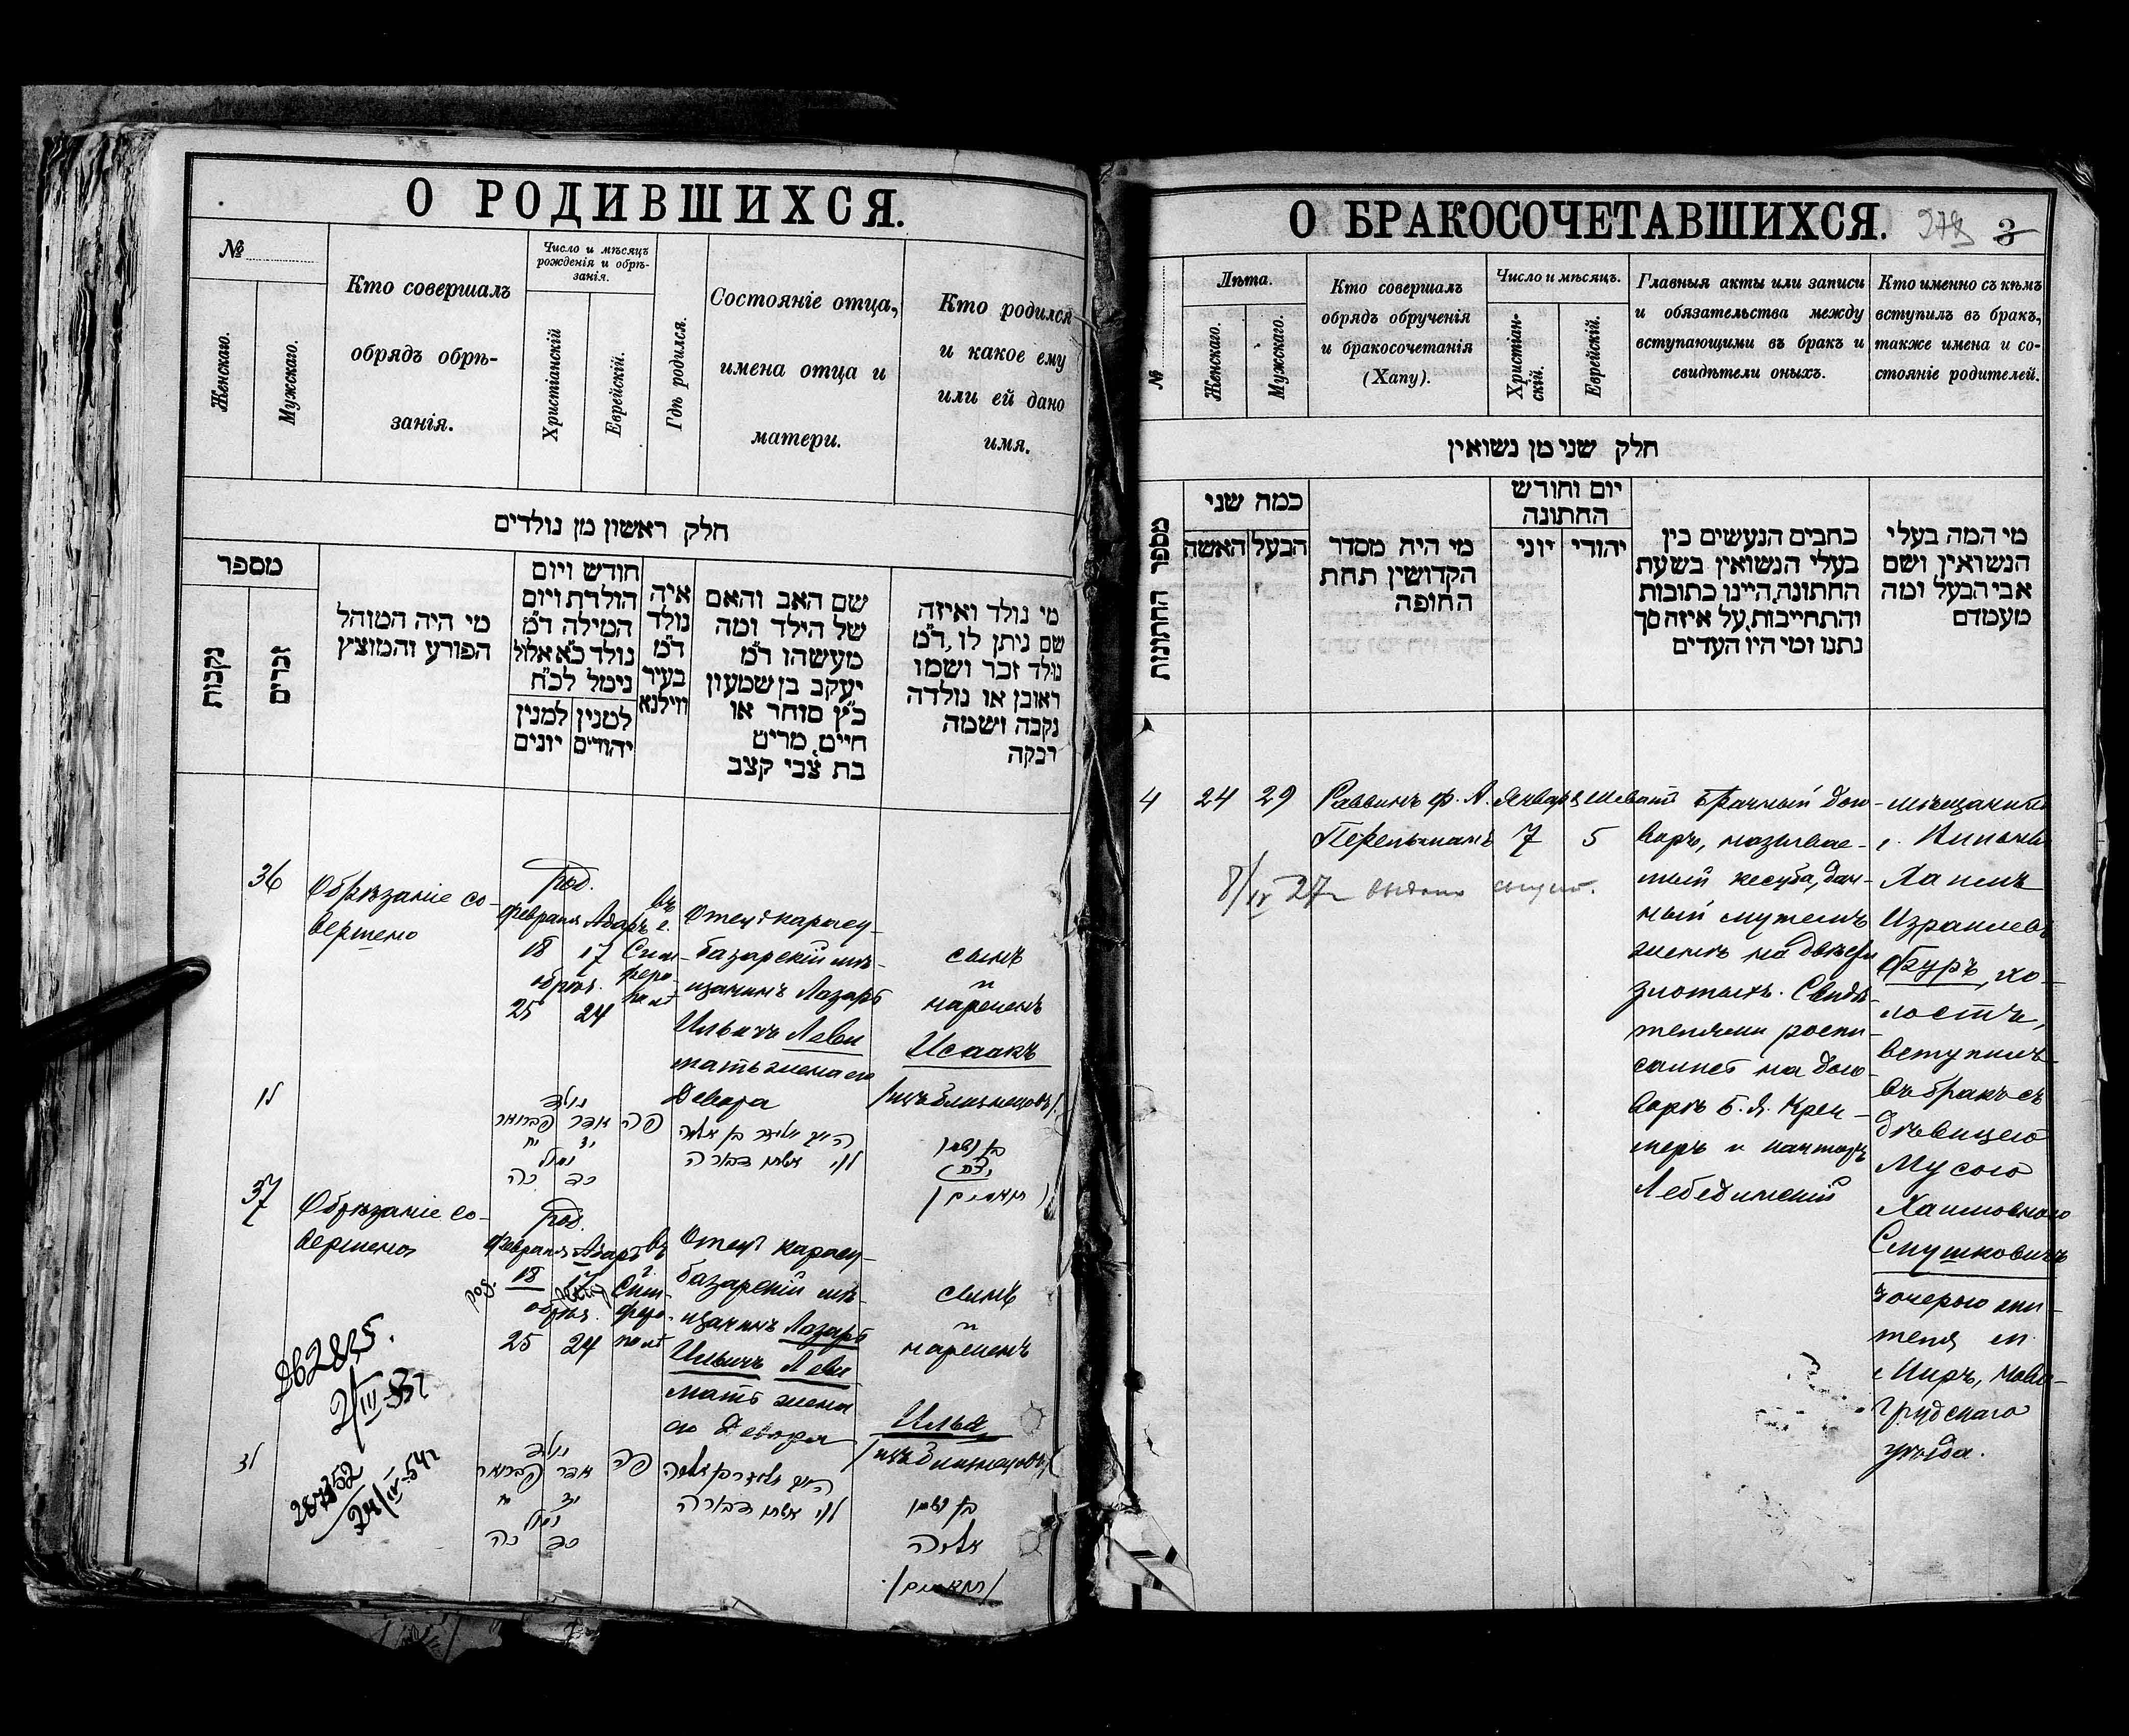 О РОДИВШИХСЯ.
№
Женскаго.
Мужскаго.
Кто совершалъ
обрядъ обрѣ-
занія.
Число и мѣсяцъ
рожденія и обрѣ-
занія.
Христіанскій
Еврейскій.
Гдѣ родился.
Состояніе отца,
имена отца и
матери.
Кто родился
и какое ему
или ей дано
имя.
חלק ראשון מן נולדים
מספר
נקבות
זכרים
מי היה המוהל
הפורע והמוצץ
חודש ויום
הולדת ויום
המילה ד״מ
נולד כ״א אלול
נימל לכ״ח
למנין
יהודים
למנין
יונים
איה
נולד
ד״מ
בעיר
ווילנא
שם האב והאם
של הילד ומה
מעשהו ד״מ
יעקב בן שמעון
כ״ץ סוחר או
חייט, מרים
בת צבי קצב
מי נולד ואיזה
שם ניתן לו, ד״מ
נולד זכר ושמו
ראובן או נולדה
נקבה ושמה
רבקה
36
Обрѣзаніе со-
вершено
Род.
Февраля Адаръ
18 17
обрѣз.
25 24
въ
г.
Сим-
феро-
полѣ
Отецъ карасу-
базарскій мѣ-
щанинъ Лазарь
Ильичъ Леви
мать жена его
Девора
сынъ
и
нареченъ
Исаакъ
/изъ близнецовъ/
נולד
אדר פברואר
יז יח
נימול
כד כה
פה
לוי אשתו דבורה
37
Обрѣзаніе со-
вершено
Род.
Февраля Адаръ
18 17
обрѣз.
25 24
въ
г.
Сим-
феро-
полѣ
Отецъ карасу-
базарскій мѣ-
щанинъ Лазарь
Ильичъ Леви
мать жена
его Девора
сынъ
и
нареченъ
Илья
/изъ близнецовъ/
נולד
אדר פברואר
יז יח
נימול
כד כה
פה
לוי אשתו דבורה
אליה
О БРАКОСОЧЕТАВШИХСЯ.
3
№
Лѣта.
Женскаго.
Мужскаго.
Кто совершалъ
обрядъ обрученія
и бракосочетанія
(Хапу).
Число и мѣсяцъ.
Христіан-
скій.
Еврейскій.
Главныя акты или записи
и обязательства между
вступающими въ бракъ и
свидѣтели оныхъ.
Кто именно съ кѣмъ
вступилъ въ бракъ,
также имена и со-
стояніе родителей.
חלק שני מן נשואין
מספר החתונות
כמה שני
האשה
הבעל
מי היה מסדר
הקדושין תחת
החופה
יום וחודש
החתונה
יוני
יהודי
כתבים הנעשים בין
בעלי הנשואין בשעת
החתונה, היינו כתובות
והתחייבות, על איזה סך
נתנו ומי היו העדים
מי המה בעלי
הנשואין ושם
אבי הבעל ומה
מעמדם
4
24
29
Раввинъ Ф. А.
Перельманъ
Январь
7
Шеватъ
5
8/IV 27
Брачный дого-
воръ, называе-
мый кесуба, дан-
ный мужемъ
женѣ на двѣсти
злотыхъ. Свидѣ-
телями роспи-
сались на дого-
ворѣ Б. Я. Крей-
меръ и канторъ
Лебединскій
мѣщанинъ
г. Вильны
Хаимъ
Израилевъ
Фуръ, хо-
лостъ,
вступилъ
въ бракъ съ
дѣвицею
Мусею
Хаимовною
Смушковичъ
дочерью жи-
теля м.
Миръ, Ново-
грудскаго
уѣзда.